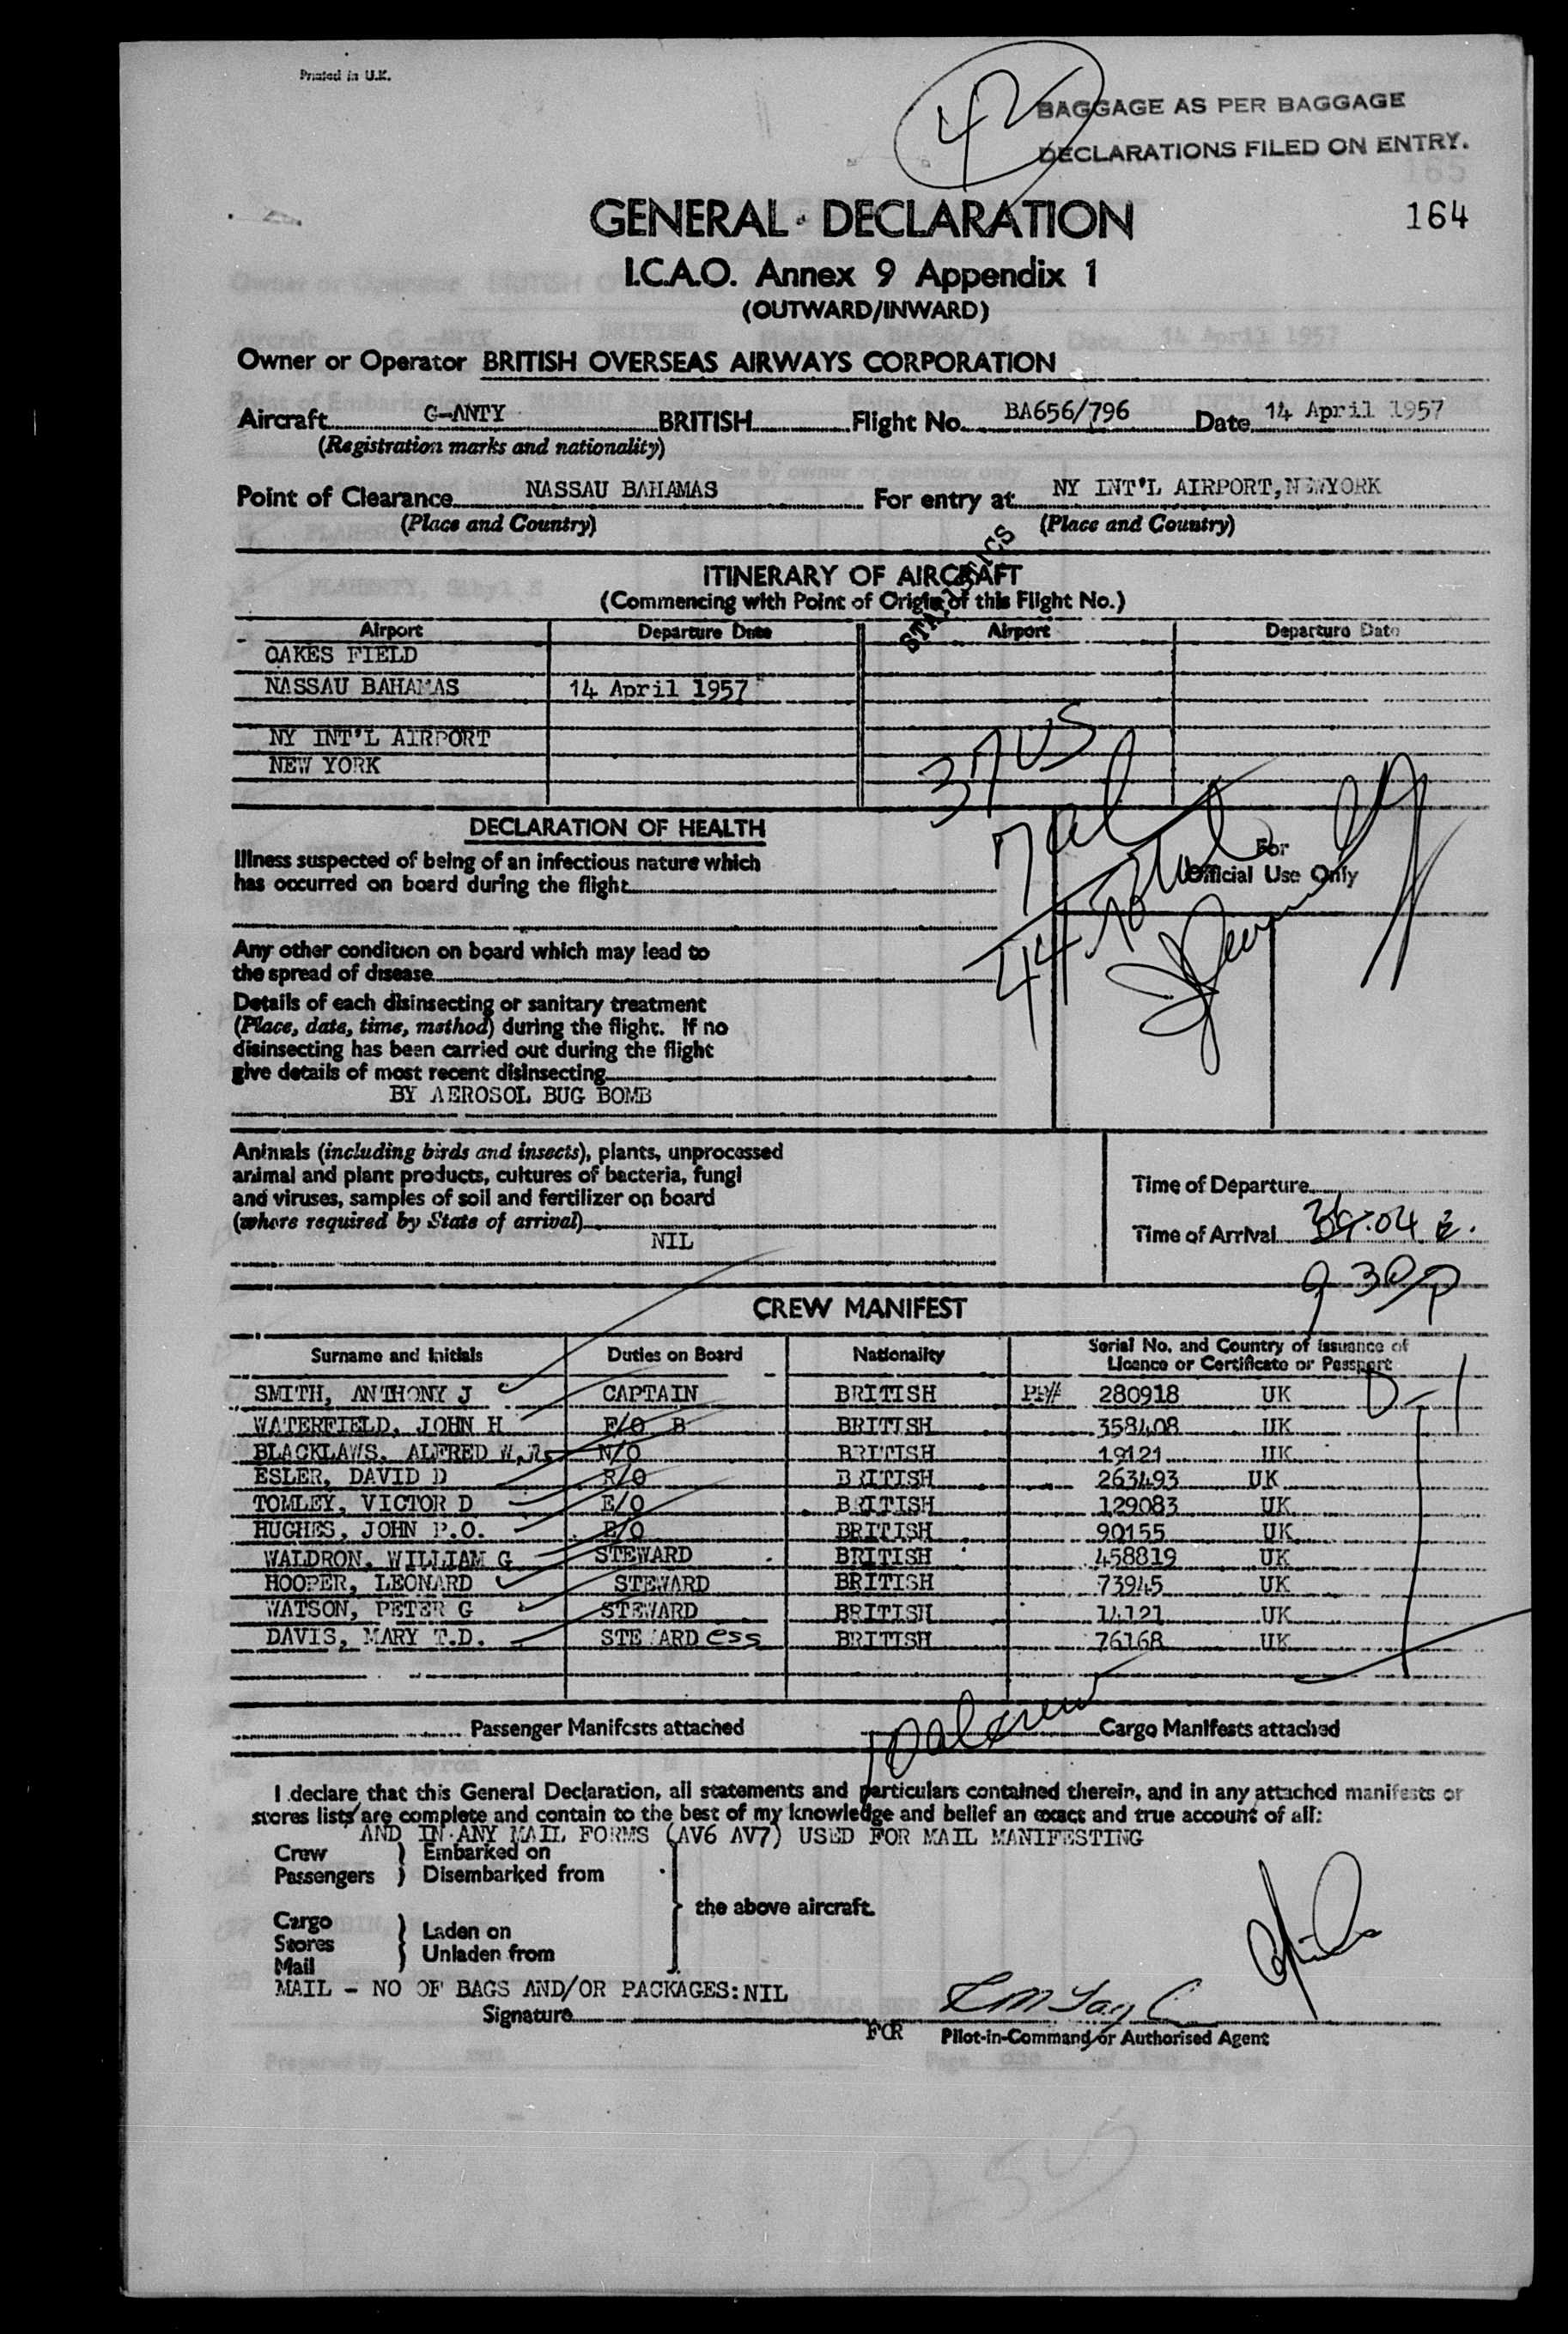 Printed in U.K.
42
BAGGAGE AS PER BAGGAGE
DECLARATIONS FILED ON ENTRY.
GENERAL DECLARATION
164
I.C.A.O. Annex 9 Appendix 1
(OUTWARD/INWARD)
Owner or Operator BRITISH OVERSEAS AIRWAYS CORPORATION
Aircraft G-ANTY BRITISH Flight No. BA656/796 Date 14 April 1957
(Registration marks and nationality)
Point of Clearance NASSAU BAHAMAS For entry at NY INT'L AIRPORT, NEWYORK
(Place and Country) (Place and Country)
STATISTICS
ITINERARY OF AIRCRAFT
(Commencing with Point of Origin of this Flight No.)
Airport Departure Date Airport Departure Date
OAKES FIELD
NASSAU BAHAMAS 14 April 1957
NY INT'L AIRPORT
NEW YORK
37 US
7 al
44 Total
DECLARATION OF HEALTH
For
Official Use Only
Illness suspected of being of an infectious nature which
has occurred on board during the flight
Any other condition on board which may lead to
the spread of disease
Details of each disinsecting or sanitary treatment
(Place, date, time, method) during the flight. If no
disinsecting has been carried out during the flight
give details of most recent disinsecting
BY AEROSOL BUG BOMB
Animals (including birds and insects), plants, unprocessed
animal and plant products, cultures of bacteria, fungi
and viruses, samples of soil and fertilizer on board
(where required by State of arrival)
NIL
Time of Departure
Time of Arrival
9 30 P
CREW MANIFEST
Surname and Initials Duties on Board Nationality Serial No. and Country of Issuance of
Licence or Certificate or Passport
SMITH, ANTHONY J CAPTAIN BRITISH PP# 280918 UK D-1
WATERFIELD, JOHN H F/O B BRITISH 358408 UK
BLACKLAWS, ALFRED W.R. N/O BRITISH 19121 UK
ESLER, DAVID D R/O BRITISH 263493 UK
TOMLEY, VICTOR D E/O BRITISH 129083 UK
HUGHES, JOHN P.O. E/O BRITISH 90155 UK
WALDRON, WILLIAM G STEWARD BRITISH 458819 UK
HOOPER, LEONARD STEWARD BRITISH 73945 UK
WATSON, PETER G STEWARD BRITISH 14121 UK
DAVIS, MARY T.D. STEWARDess BRITISH 76168 UK
Passenger Manifests attached 10 al crew Cargo Manifests attached
I declare that this General Declaration, all statements and particulars contained therein, and in any attached manifests or
stores lists are complete and contain to the best of my knowledge and belief an exact and true account of all:
AND IN ANY MAIL FORMS (AV6 AV7) USED FOR MAIL MANIFESTING
Crew } Embarked on
Passengers } Disembarked from
} the above aircraft.
Cargo
Stores } Laden on
Mail } Unladen from
MAIL - NO OF BAGS AND/OR PACKAGES: NIL
Signature
FOR Pilot-in-Command or Authorised Agent